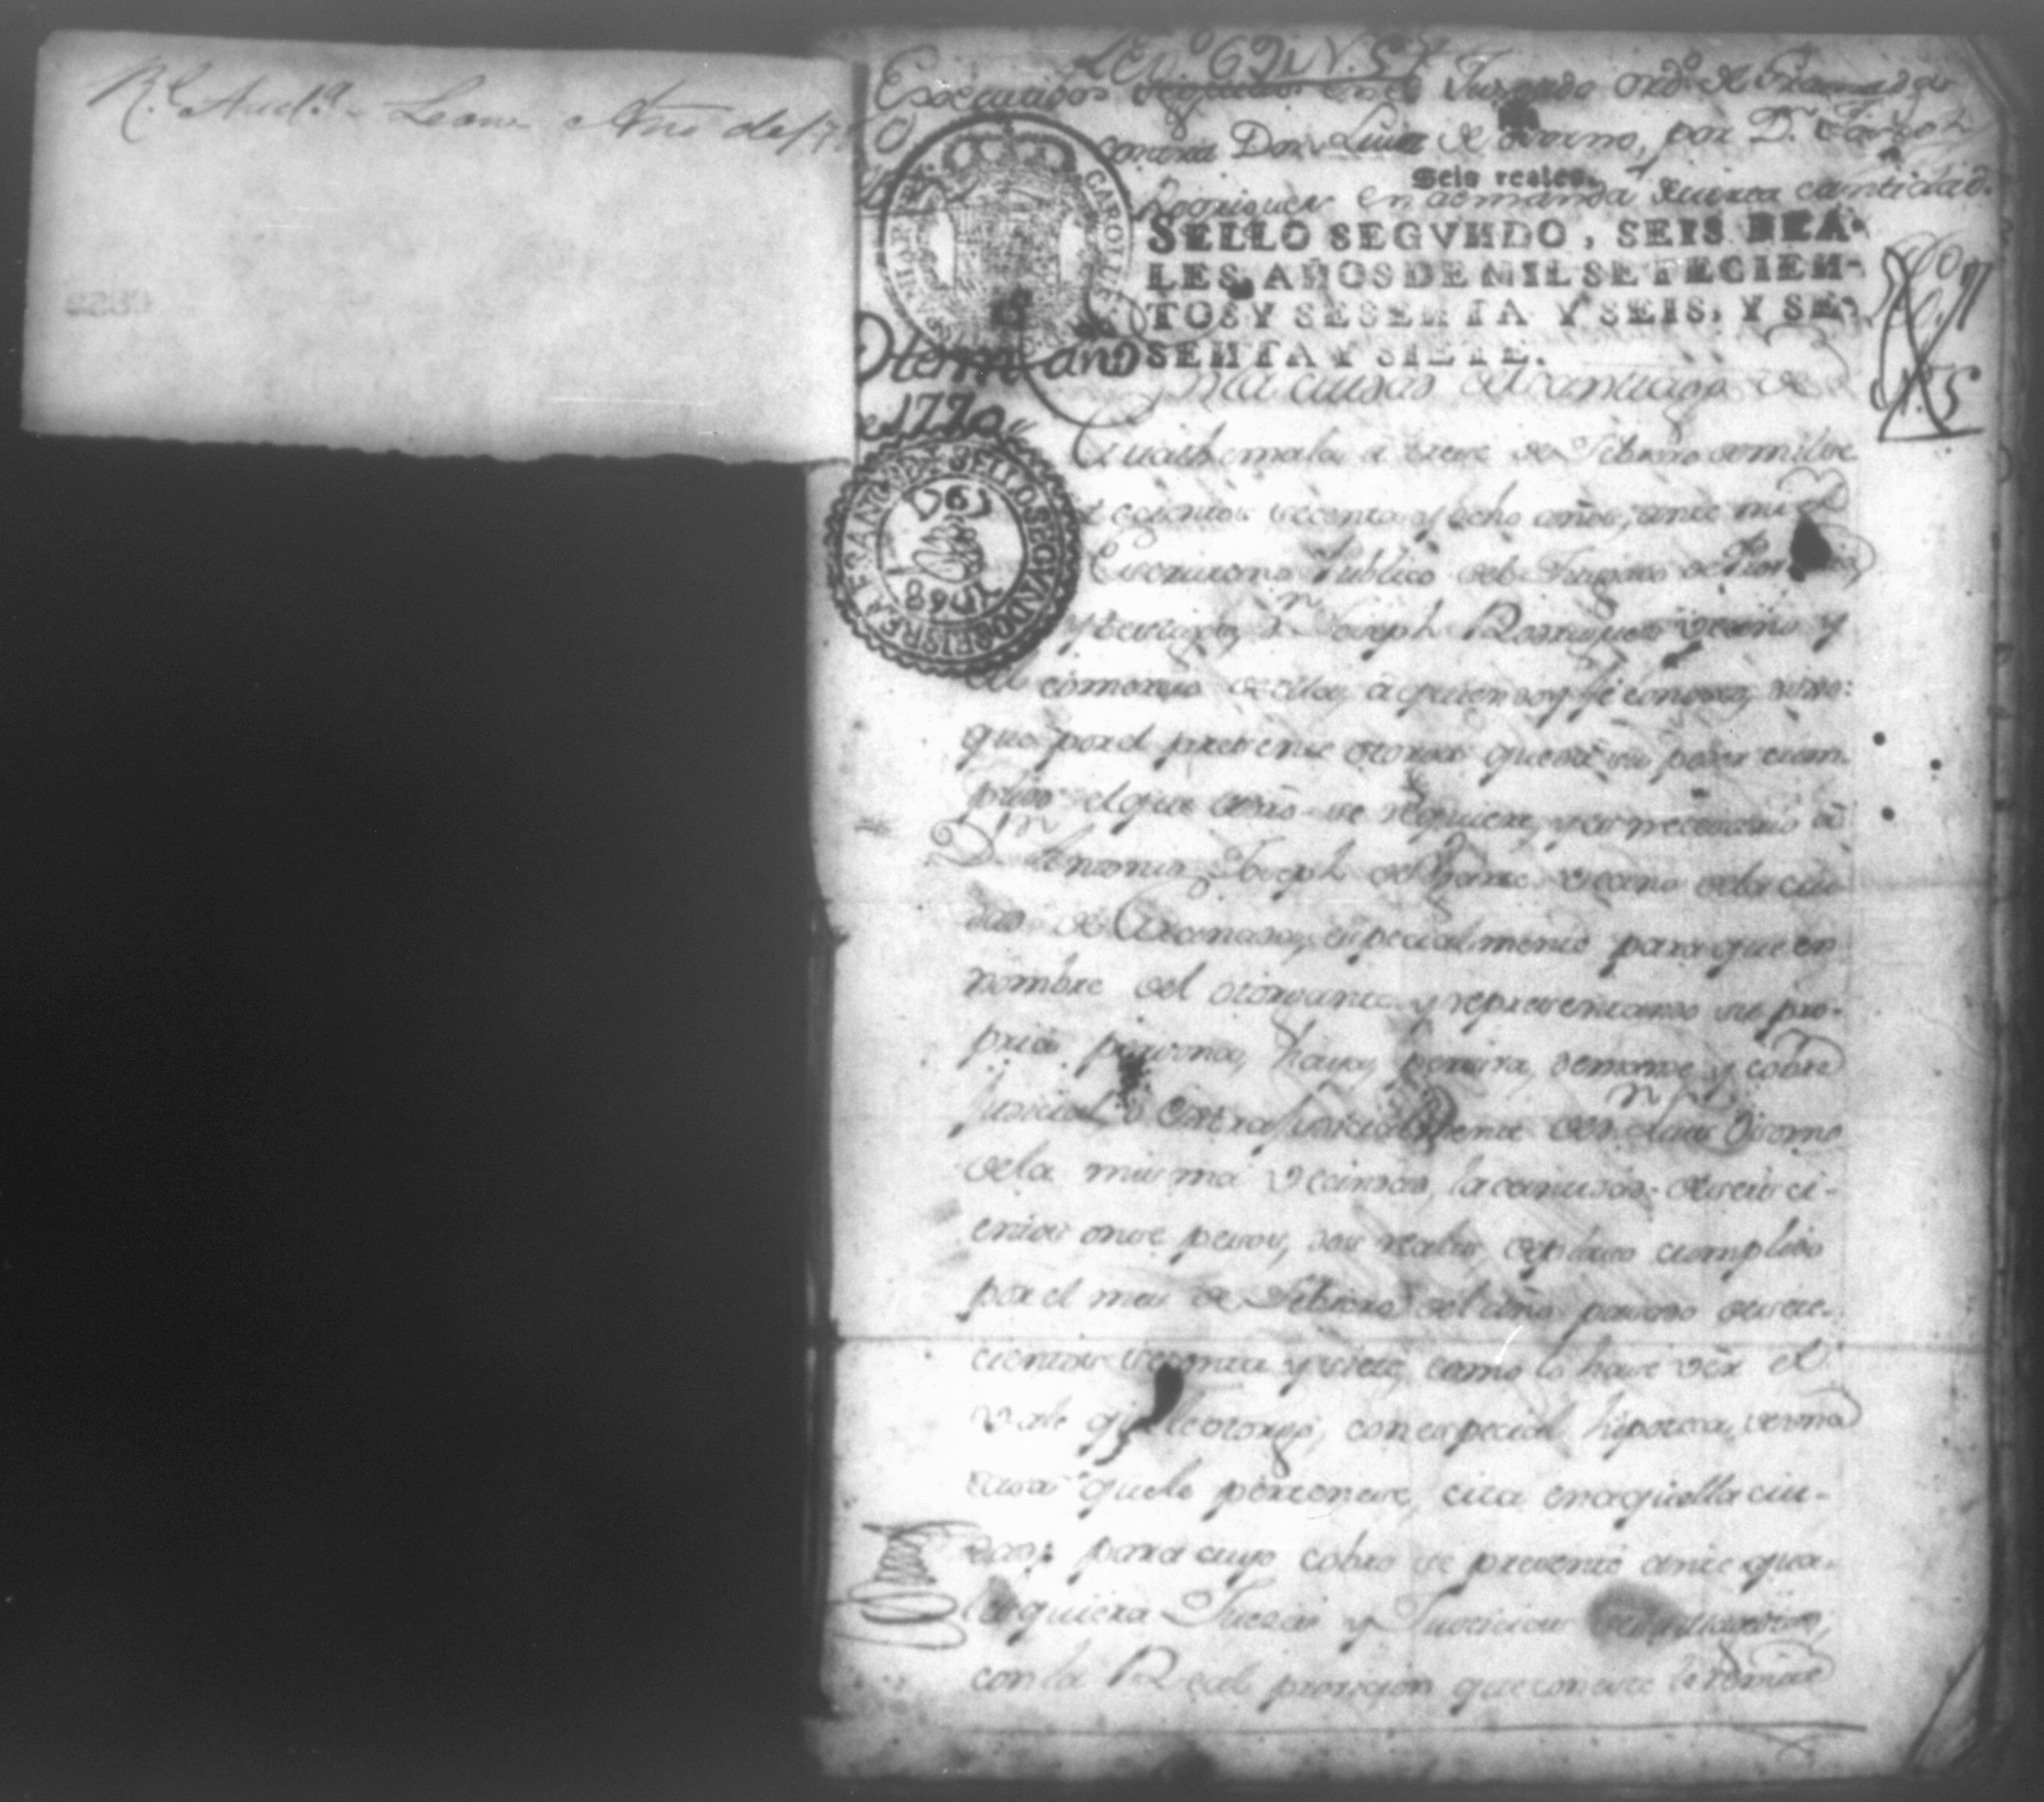 Rl Auda Leon Año de 1770
Leg.o 69 N. 57
Executados seguidos en el Juzgado ord.o de Granada
contra Don Luis de Osorno, por Dn Joseph
Seis reales.
Rodriguez en demanda de cierta cantidad.
SELLO SEGVNDO, SEIS REA-
LES, AÑOS DE MIL SETECIEN-
TOS Y SESENTA Y SEIS, Y SE-
SENTA Y SIETE.
CAROLUS
año
de 1770
SELLO SEGVNDO SEIS REALES
1767
1768
En la ciudad de Santiago de
Guathemala a trece de Febrero de mil se
tecientos sesenta y ocho años, ante mi el
Escrivano Publico del Juzgado de
y testigos, Dn Joseph Rodriguez vecino y
del comercio de ella, a quien doy fe conosco, dixo:
que por el presente otorga que da su poder cum-
plido el que de dro se requiere, y es necesario a
Dn Antonio Joseph de vecino de la ciu-
dad de Granada, especialmente para que en
nombre del otorgante y representando su pro-
pria persona, haya, perciva, demande y cobre
judicial o extrajudicialmente de Dn Luis Osorno
de la misma vecindad, la cantidad de seisci-
entos onse pesos, dos reales de plaso cumplido
por el mes de Febrero del año pasado de sete-
cientos sesenta y siete, como lo hase ver el
vale qe le otorgó, con especial hipoteca de una
casa que le pertenese, cita en aquella ciu-
dad; para cuyo cobro se presente ante qua-
lesquiera Jueces y Justicias
con la Real provision que con este le remite